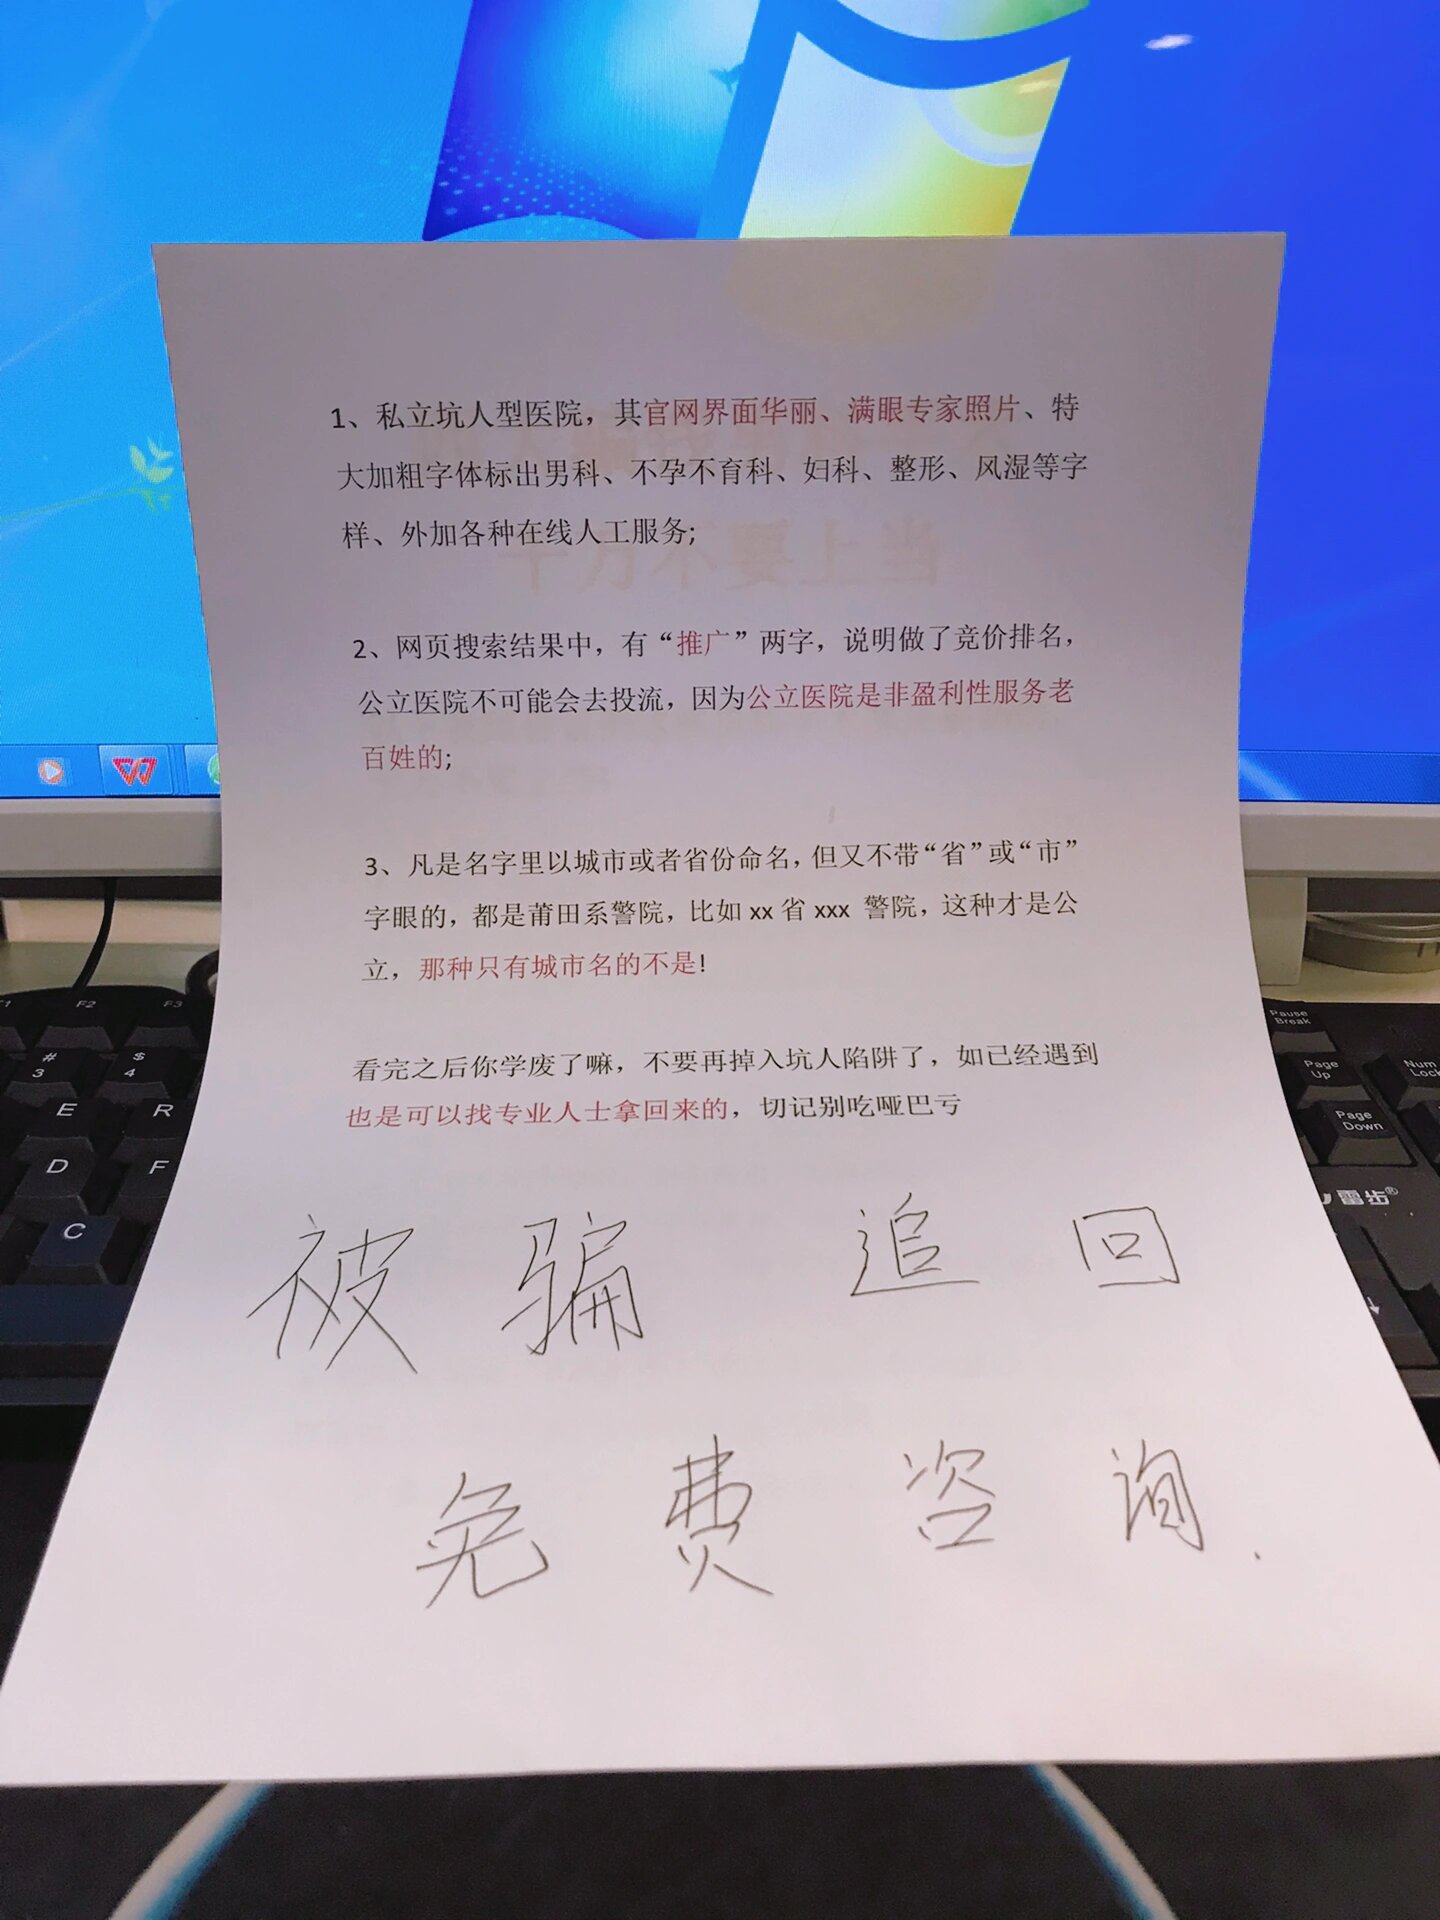 1、私立坑人型医院，其官网界面华丽、满眼专家照片、特
大加粗字体标出男科、不孕不育科、妇科、整形、风湿等字
样、外加各种在线人工服务;
千万不要上当
2、网页搜索结果中，有“推广”两字，说明做了竞价排名，
公立医院不可能会去投流，因为公立医院是非盈利性服务老
百姓的;
3、凡是名字里以城市或者省份命名，但又不带“省”或“市”
字眼的，都是莆田系警院，比如 xx 省 xxx 警院，这种才是公
立，那种只有城市名的不是!
看完之后你学废了嘛，不要再掉入坑人陷阱了，如已经遇到
也是可以找专业人士拿回来的，切记别吃哑巴亏
被骗 追回
免费咨询.
F1 F2 F3
# 3 $ 4
E R
D F
C
Pause Break
Page Up Num Lock
Page Down
雷步®